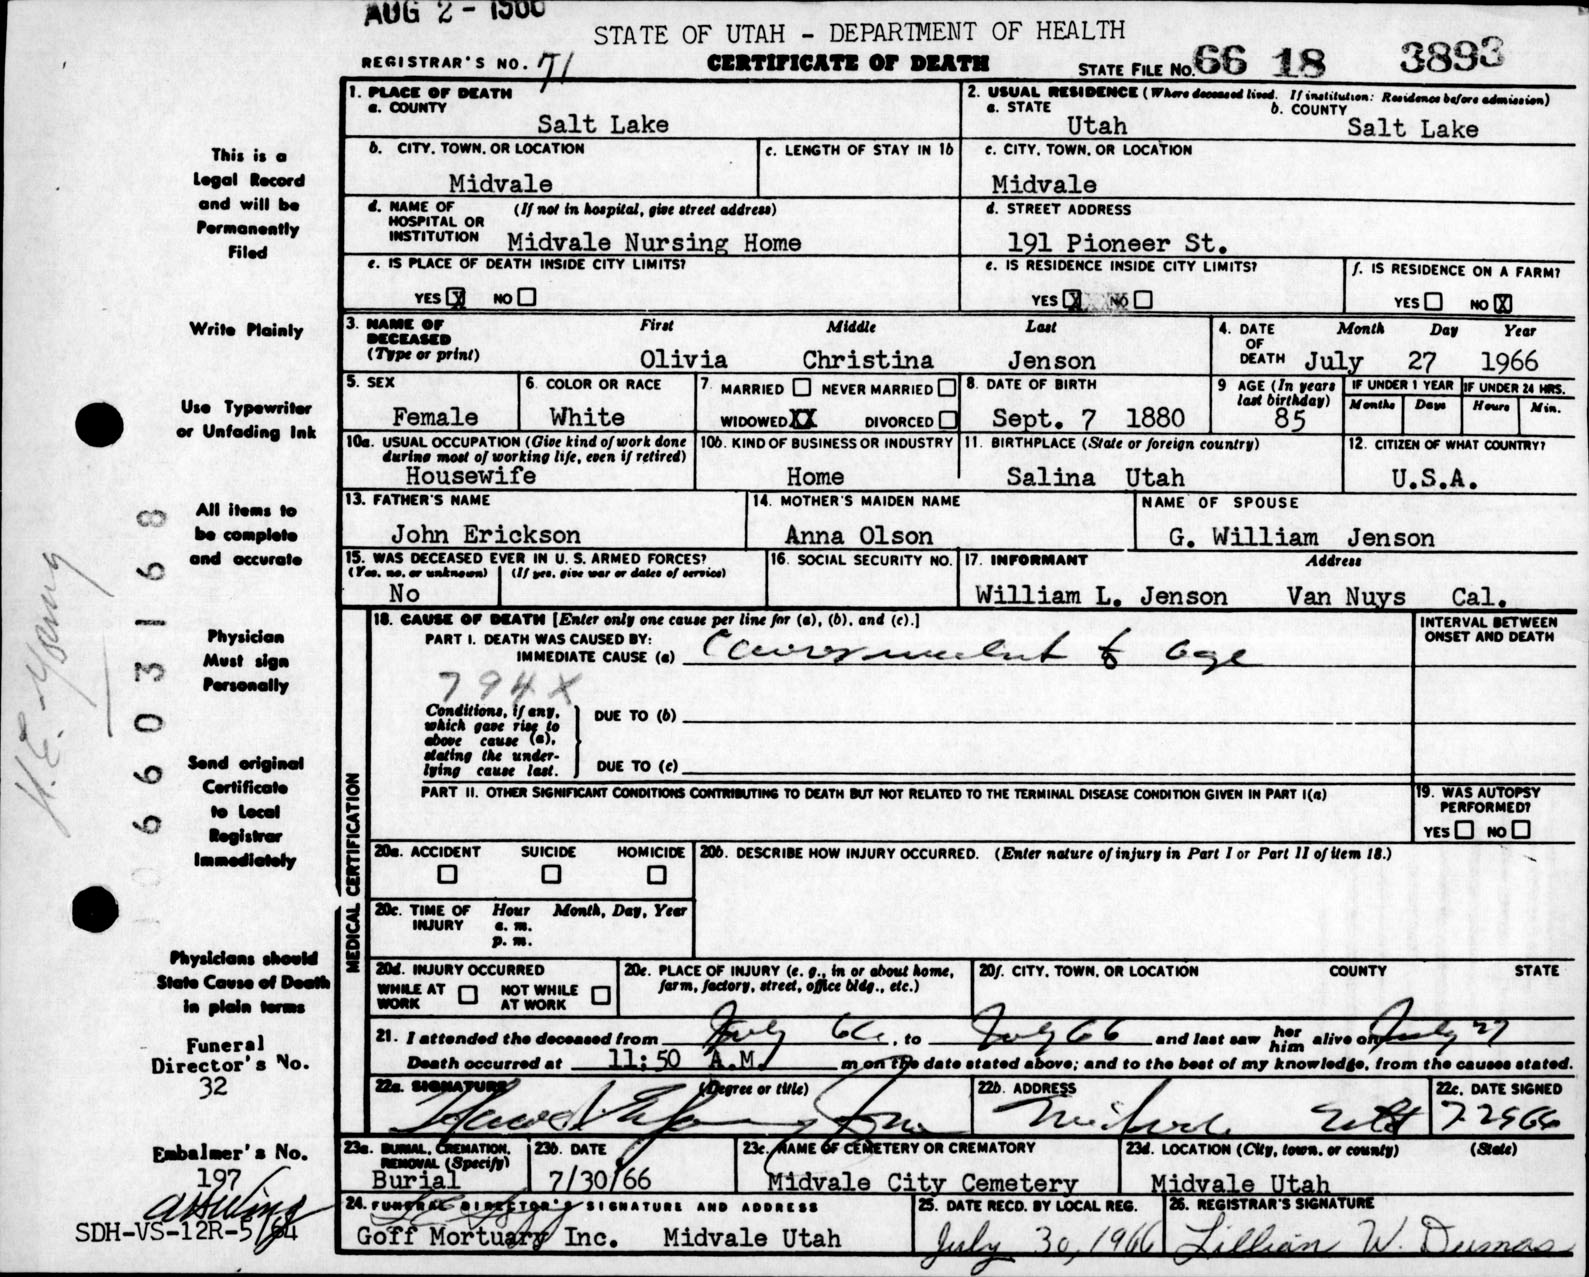 AUG 2 - 1966
STATE OF UTAH - DEPARTMENT OF HEALTH
REGISTRAR'S NO. 71
CERTIFICATE OF DEATH
STATE FILE NO. 66 18 3893
1. PLACE OF DEATH
a. COUNTY
Salt Lake
2. USUAL RESIDENCE (Where deceased lived. If institution: Residence before admission)
a. STATE b. COUNTY
Utah Salt Lake
b. CITY, TOWN, OR LOCATION
Midvale
c. LENGTH OF STAY IN 1b
c. CITY, TOWN, OR LOCATION
Midvale
d. NAME OF HOSPITAL OR INSTITUTION (If not in hospital, give street address)
Midvale Nursing Home
d. STREET ADDRESS
191 Pioneer St.
e. IS PLACE OF DEATH INSIDE CITY LIMITS?
YES X NO
e. IS RESIDENCE INSIDE CITY LIMITS?
YES X NO
f. IS RESIDENCE ON A FARM?
YES NO X
3. NAME OF DECEASED (Type or print)
First Middle Last
Olivia Christina Jenson
4. DATE OF DEATH
Month Day Year
July 27 1966
5. SEX
Female
6. COLOR OR RACE
White
7. MARRIED NEVER MARRIED
WIDOWED XX DIVORCED
8. DATE OF BIRTH
Sept. 7 1880
9 AGE (In years last birthday)
85
IF UNDER 1 YEAR
Months Days
IF UNDER 24 HRS.
Hours Min.
10a. USUAL OCCUPATION (Give kind of work done during most of working life, even if retired)
Housewife
10b. KIND OF BUSINESS OR INDUSTRY
Home
11. BIRTHPLACE (State or foreign country)
Salina Utah
12. CITIZEN OF WHAT COUNTRY?
U.S.A.
13. FATHER'S NAME
John Erickson
14. MOTHER'S MAIDEN NAME
Anna Olson
NAME OF SPOUSE
G. William Jenson
15. WAS DECEASED EVER IN U. S. ARMED FORCES?
(Yes, no, or unknown) (If yes, give war or dates of service)
No
16. SOCIAL SECURITY NO.
17. INFORMANT Address
William L. Jenson Van Nuys Cal.
18. CAUSE OF DEATH [Enter only one cause per line for (a), (b), and (c).]
PART I. DEATH WAS CAUSED BY:
IMMEDIATE CAUSE (a) to age
794X
Conditions, if any, which gave rise to above cause (a), stating the underlying cause last.
DUE TO (b)
DUE TO (c)
INTERVAL BETWEEN ONSET AND DEATH
PART II. OTHER SIGNIFICANT CONDITIONS CONTRIBUTING TO DEATH BUT NOT RELATED TO THE TERMINAL DISEASE CONDITION GIVEN IN PART I(a)
19. WAS AUTOPSY PERFORMED?
YES NO
20a. ACCIDENT SUICIDE HOMICIDE
20b. DESCRIBE HOW INJURY OCCURRED. (Enter nature of injury in Part I or Part II of item 18.)
20c. TIME OF INJURY
Hour Month, Day, Year
a. m.
p. m.
20d. INJURY OCCURRED
WHILE AT WORK NOT WHILE AT WORK
20e. PLACE OF INJURY (e. g., in or about home, farm, factory, street, office bldg., etc.)
20f. CITY, TOWN, OR LOCATION COUNTY STATE
21. I attended the deceased from July 66, to July 66 and last saw her him alive on July 27
Death occurred at 11:50 A.M. m on the date stated above; and to the best of my knowledge, from the causes stated.
22a. SIGNATURE (Degree or title)
22b. ADDRESS
Midvale Utah
22c. DATE SIGNED
7-29-66
23a. BURIAL, CREMATION, REMOVAL (Specify)
Burial
23b. DATE
7/30/66
23c. NAME OF CEMETERY OR CREMATORY
Midvale City Cemetery
23d. LOCATION (City, town, or county) (State)
Midvale Utah
24. FUNERAL DIRECTOR'S SIGNATURE AND ADDRESS
Goff Mortuary Inc. Midvale Utah
25. DATE RECD. BY LOCAL REG.
July 30, 1966
26. REGISTRAR'S SIGNATURE
Lillian W. Dumas
MEDICAL CERTIFICATION
This is a
Legal Record
and will be
Permanently
Filed
Write Plainly
Use Typewriter
or Unfading Ink
All items to
be complete
and accurate
Physician
Must sign
Personally
Send original
Certificate
to Local
Registrar
Immediately
Physicians should
State Cause of Death
in plain terms
Funeral
Director's No.
32
Embalmer's No.
197
SDH-VS-12R-5/64
H.E. Young
06603168